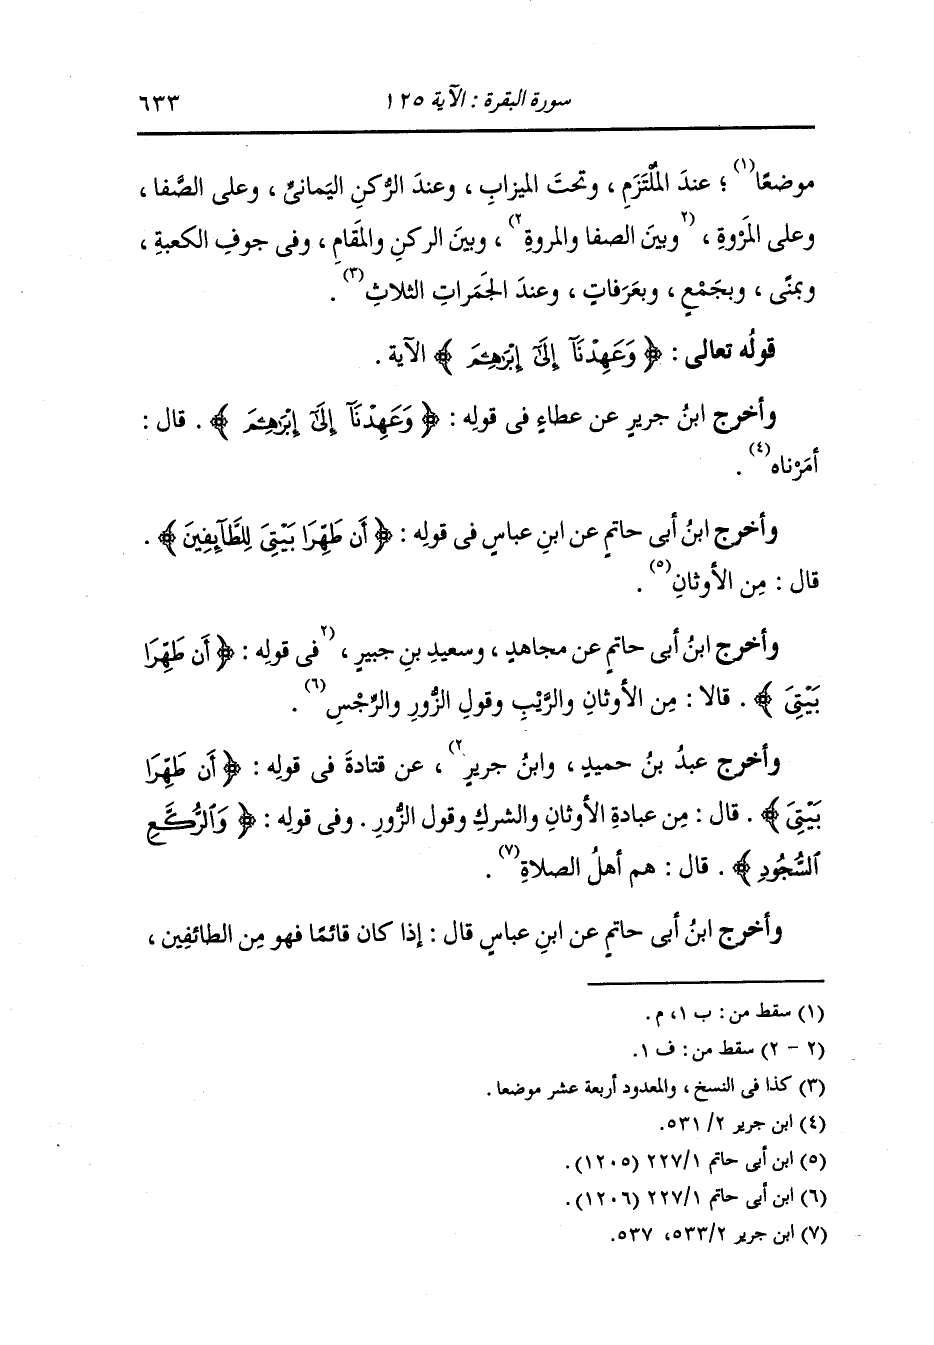 سورة البقرة : الآية ١٢٥ ٦٣٣
موضعًا(١) ؛ عندَ المُلْتَزَمِ ، وتحتَ الميزابِ ، وعندَ الرُّكنِ اليَمانىِّ ، وعلى الصَّفا ،
وعلى المَرْوةِ ، (٢وبينَ الصفا والمروةِ٢) ، وبينَ الركنِ والمقَامِ ، وفى جوفِ الكعبةِ ،
وبمنًى ، وبجَمْعٍ ، وبعَرَفاتٍ ، وعندَ الجَمَراتِ الثلاثِ(٣) .
قولُه تعالى : ﴿ وَعَهِدْنَآ إِلَىٰٓ إِبْرَٰهِـۧمَ ﴾ الآية .
وأخرج ابنُ جريرٍ عن عطاءٍ فى قولِه : ﴿ وَعَهِدْنَآ إِلَىٰٓ إِبْرَٰهِـۧمَ ﴾ . قال :
أمَرْناه(٤) .
وأخرج ابنُ أبى حاتمٍ عن ابنِ عباسٍ فى قولِه : ﴿ أَن طَهِّرَا بَيْتِىَ لِلطَّآئِفِينَ ﴾ .
قال : مِن الأوثانِ(٥) .
وأخرج ابنُ أبى حاتمٍ عن مجاهدٍ ، وسعيدِ بنِ جبيرٍ ، (٢فى قولِه : ﴿ أَن طَهِّرَا
بَيْتِىَ ﴾ . قالا : مِن الأوثانِ والرَّيْبِ وقولِ الزُّورِ والرِّجْسِ(٦) .
وأخرج عبدُ بنُ حميدٍ ، وابنُ جريرٍ٢) ، عن قتادةَ فى قولِه : ﴿ أَن طَهِّرَا
بَيْتِىَ ﴾ . قال : مِن عبادةِ الأوثانِ والشركِ وقول الزُّورِ . وفى قولِه : ﴿ وَٱلرُّكَّعِ
ٱلسُّجُودِ ﴾ . قال : هم أهلُ الصلاةِ(٧) .
وأخرج ابنُ أبى حاتمٍ عن ابنِ عباسٍ قال : إذا كان قائمًا فهو مِن الطائفِين ،
(١) سقط من : ب ١، م .
(٢ - ٢) سقط من : ف ١.
(٣) كذا فى النسخ ، والمعدود أربعة عشر موضعا .
(٤) ابن جرير ٢/ ٥٣١.
(٥) ابن أبى حاتم ٢٢٧/١ (١٢٠٥).
(٦) ابن أبى حاتم ٢٢٧/١ (١٢٠٦).
(٧) ابن جرير ٥٣٣/٢، ٥٣٧.